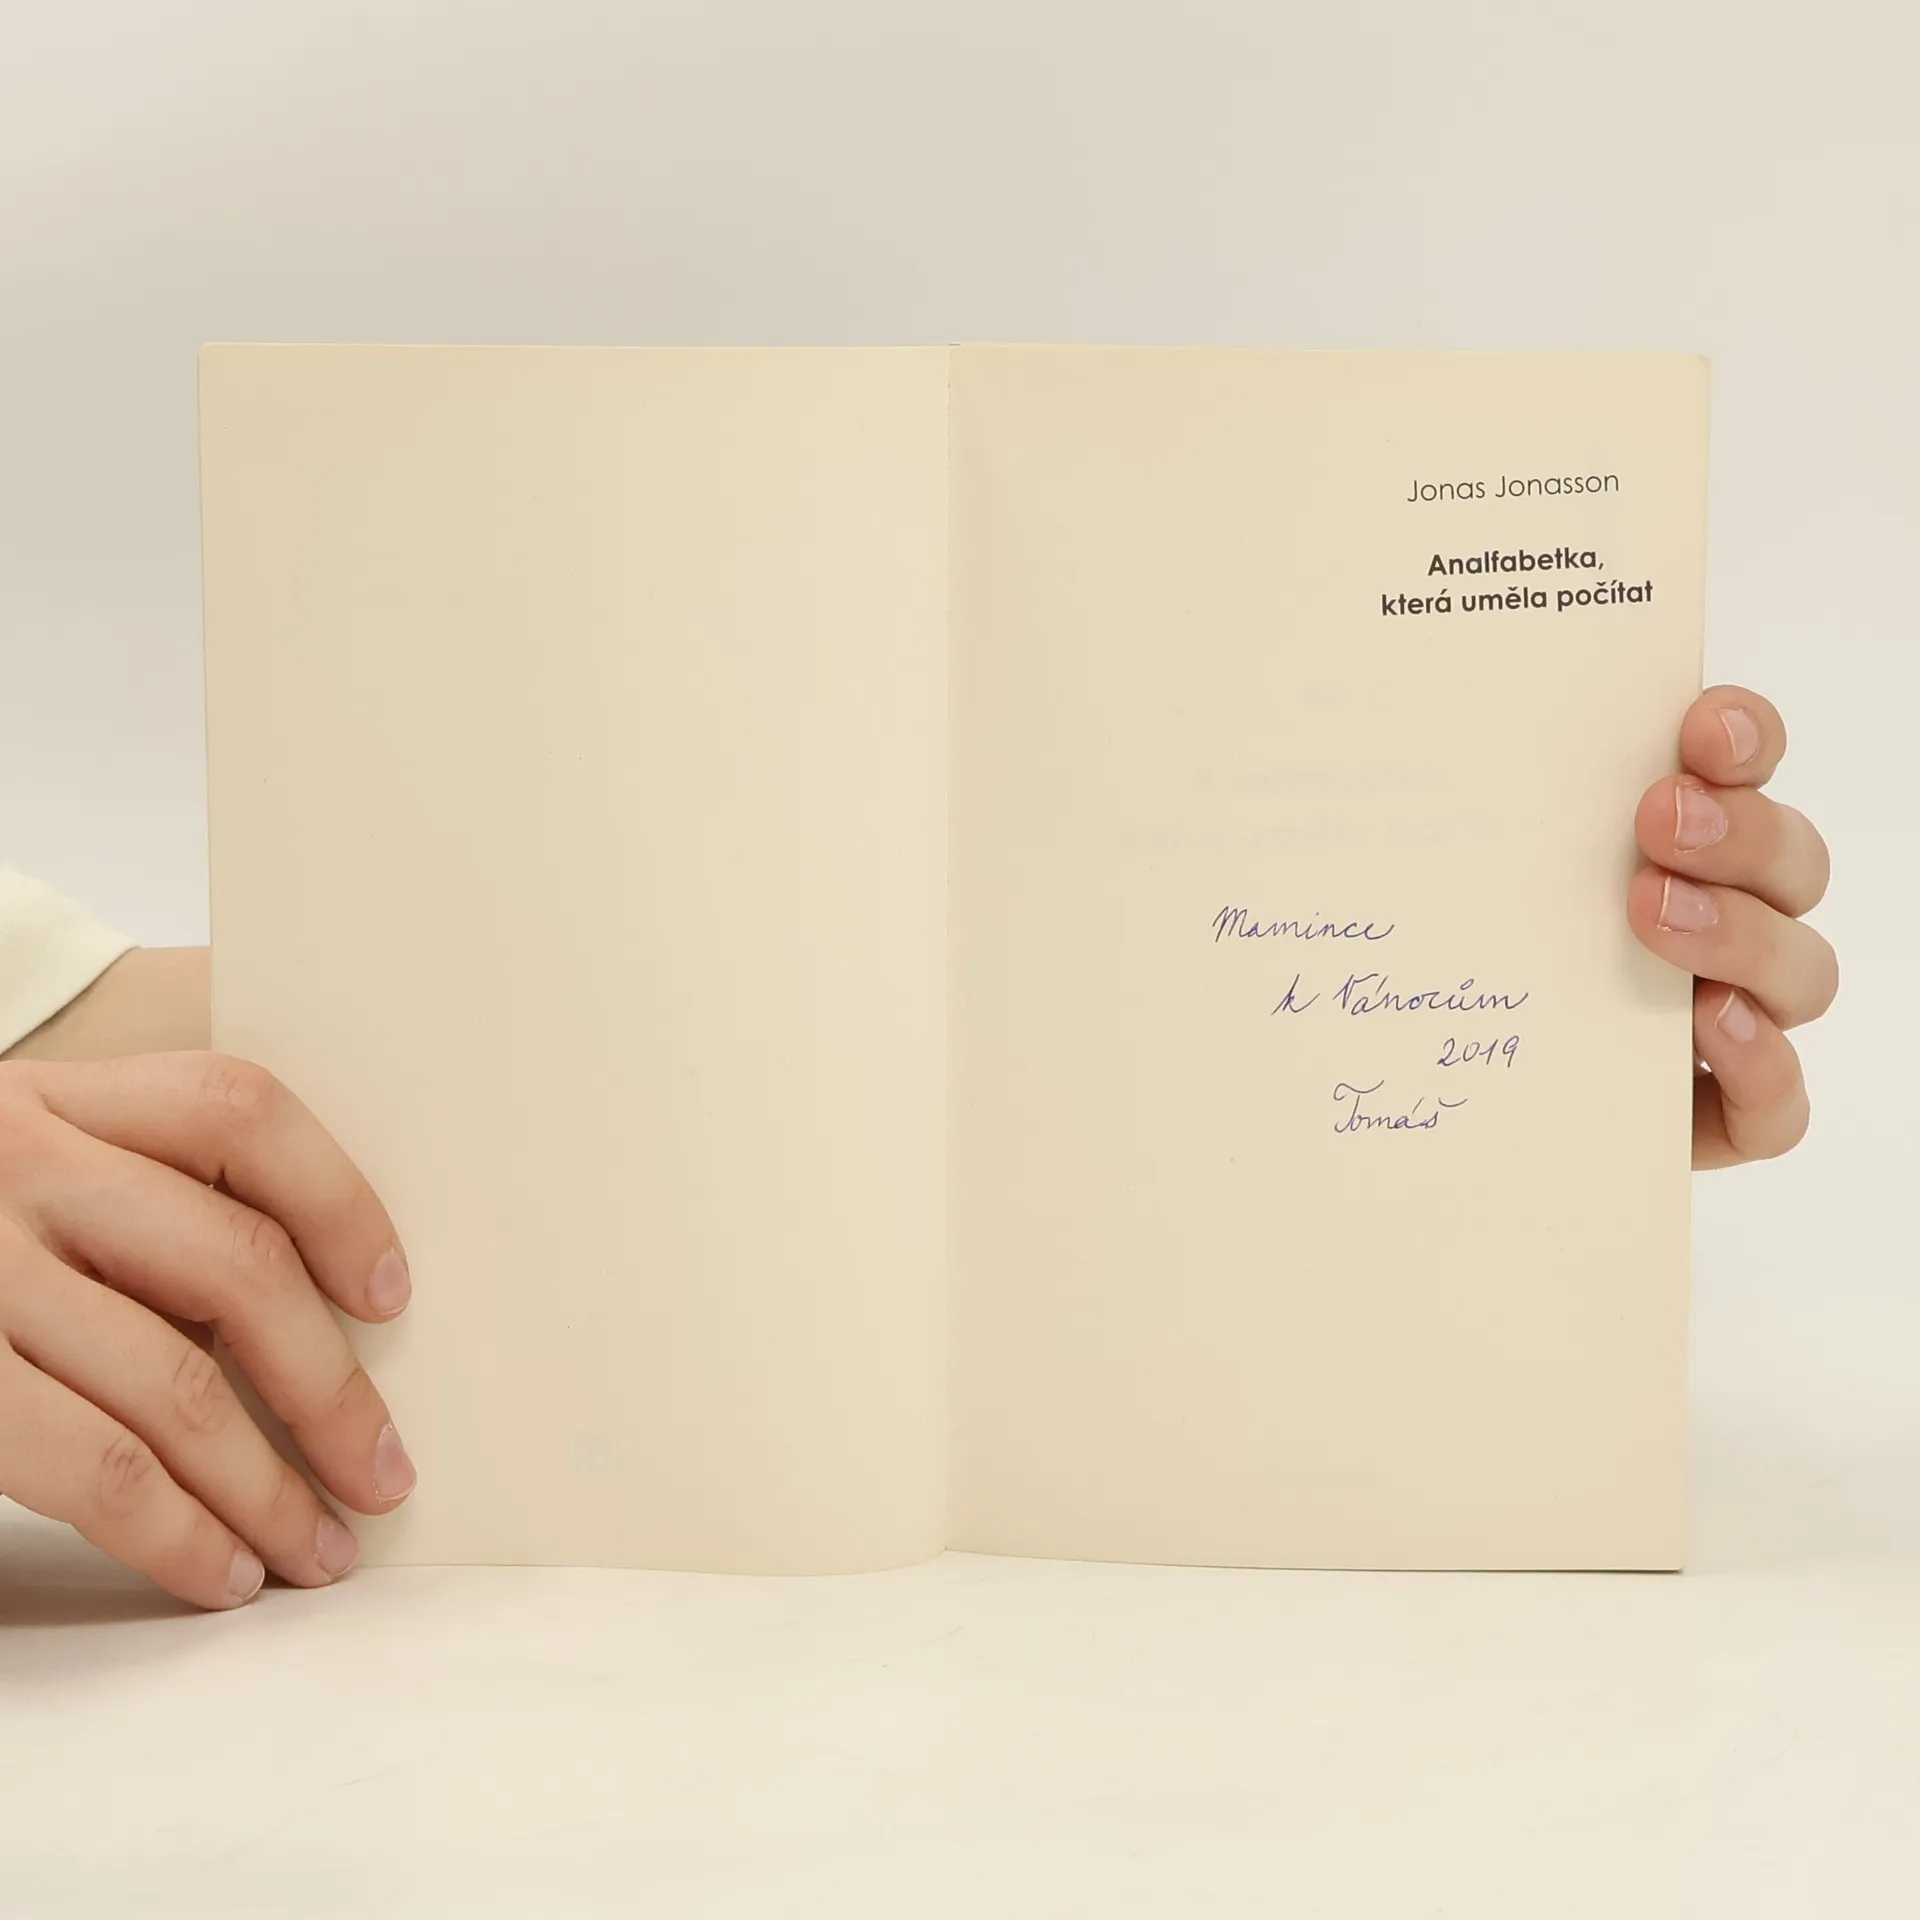 Jonas Jonasson
Analfabetka,
která uměla počítat
Mamince
k Vánocům
2019
Tomáš